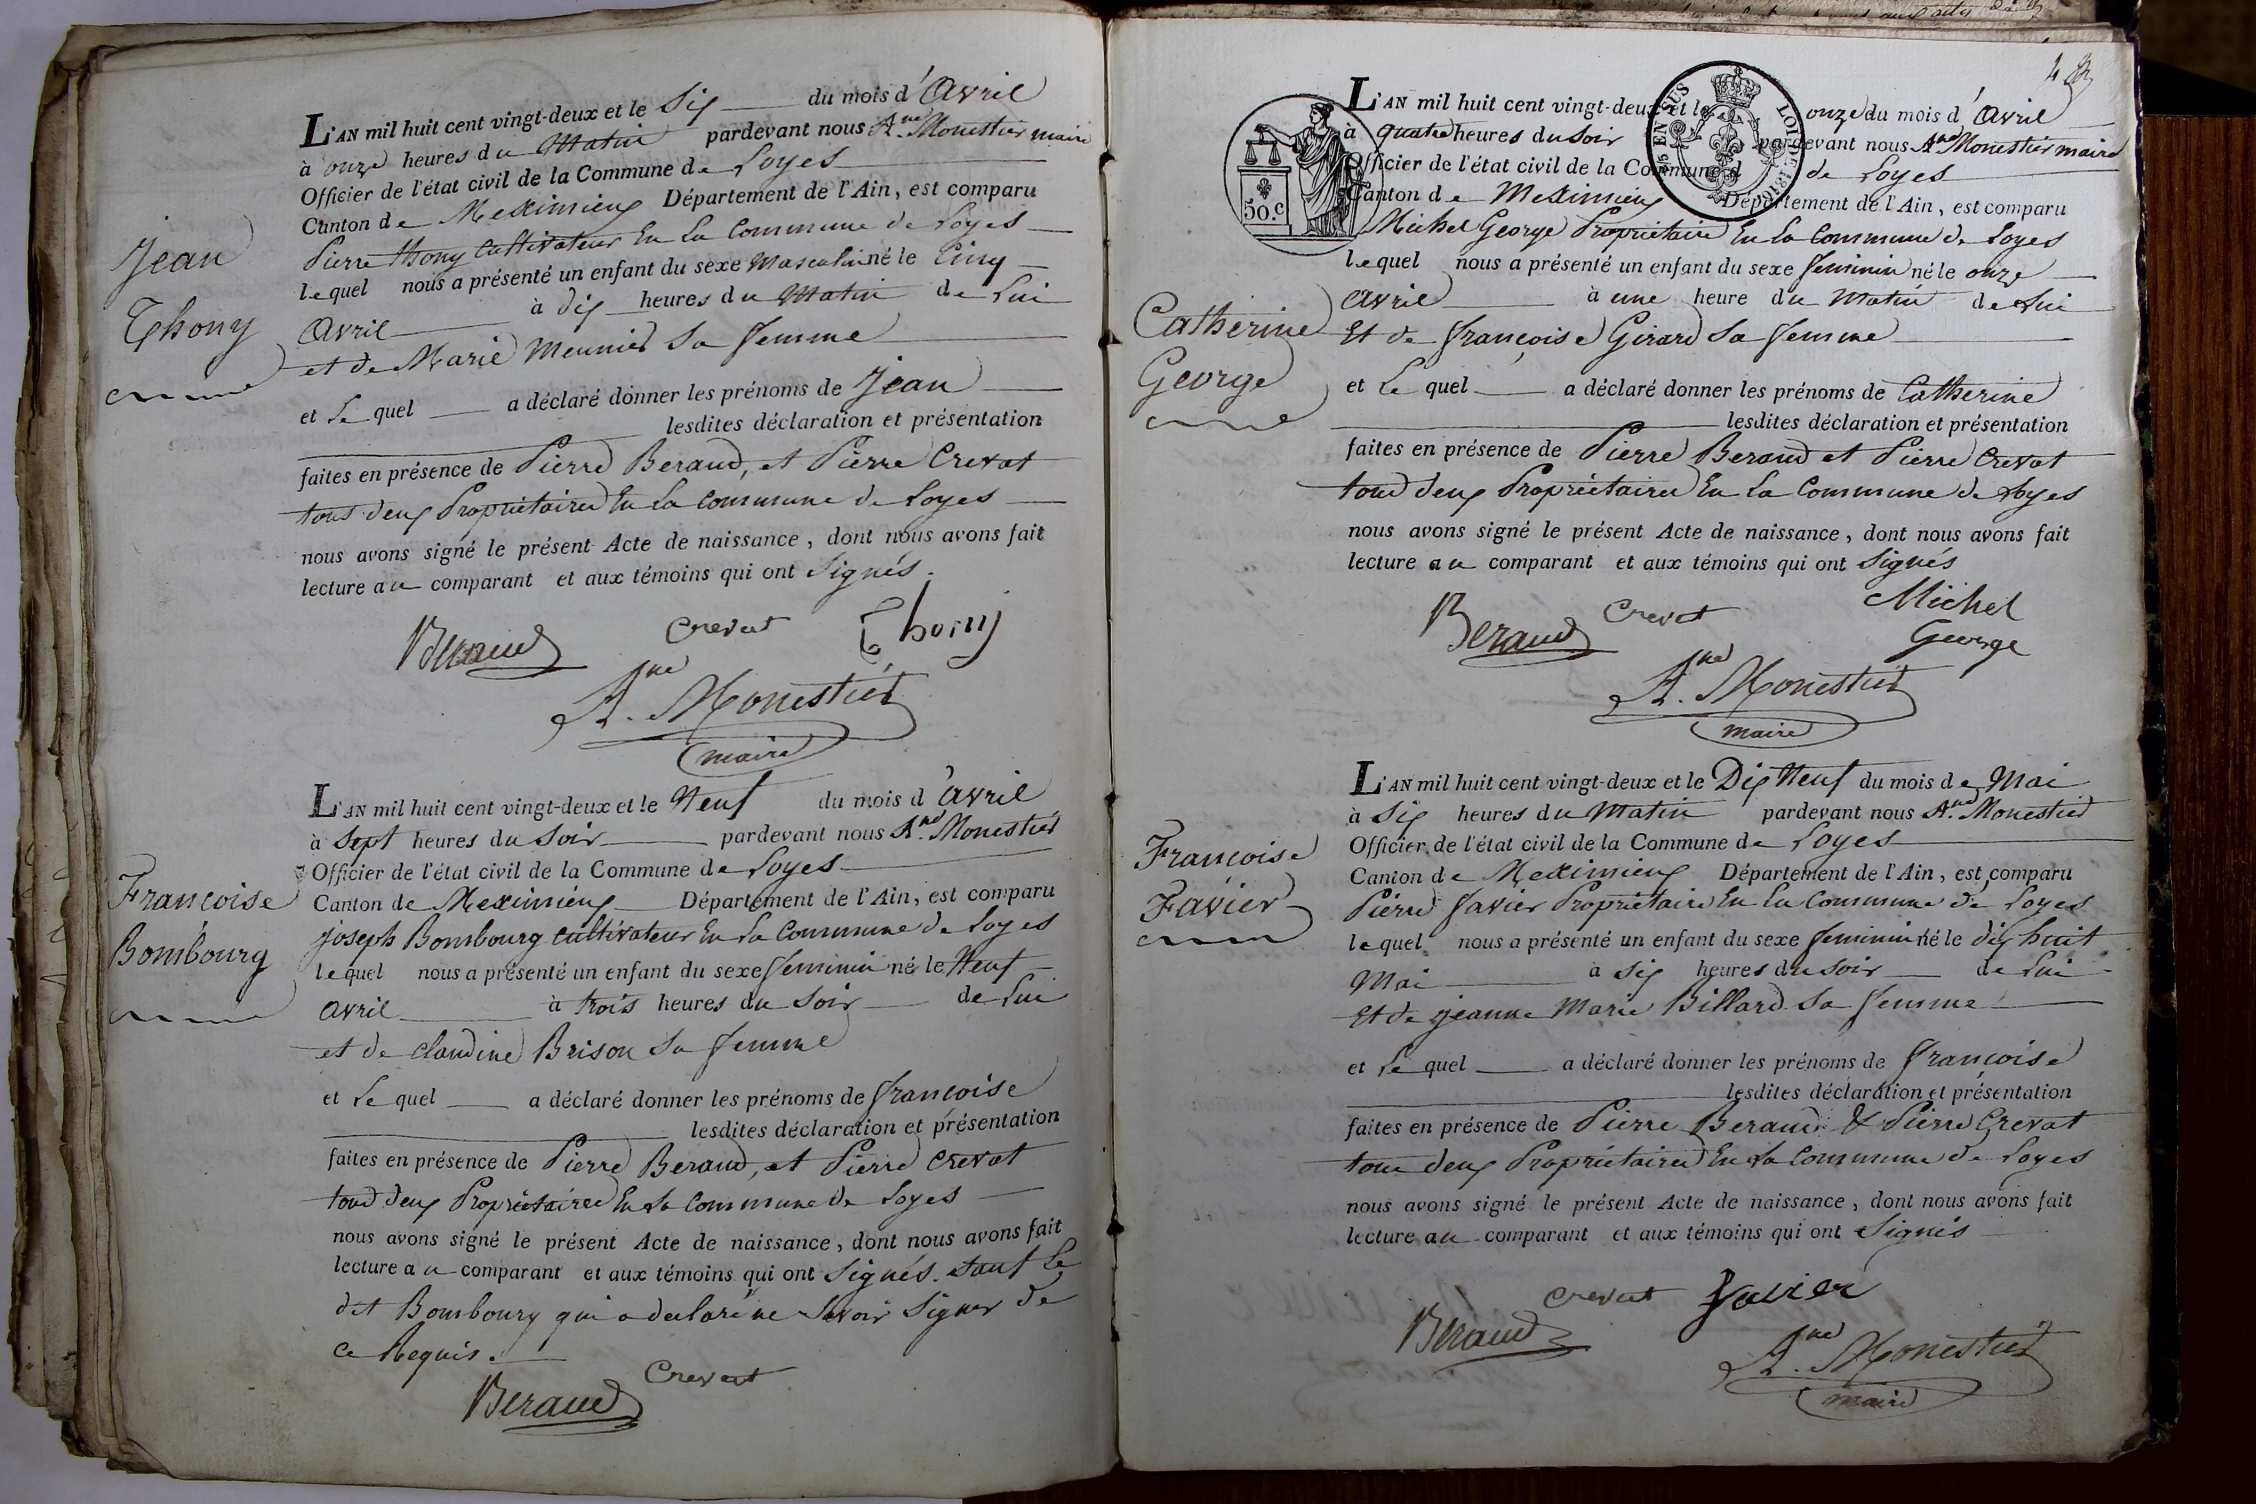 Jean
Thony
L'AN mil huit cent vingt-deux et le Six du mois d'Avril
à onze heures du Matin pardevant nous A.ne Monestier maire
Officier de l'état civil de la Commune de Loyes
Canton de Meximieux Département de l'Ain, est comparu
Pierre thony Cultivateur En La Commune de Loyes
lequel nous a présenté un enfant du sexe Masculin né le Cinq
Avril à dix heures du Matin de Lui
et de Marie Meunier Sa femme
et Le quel a déclaré donner les prénoms de Jean
lesdites déclaration et présentation
faites en présence de Pierre Beraud, et Pierre Crevat
tous deux Propriétaires En La Commune de Loyes
nous avons signé le présent Acte de naissance, dont nous avons fait
lecture au comparant et aux témoins qui ont Signés.
Beraud Crevat Thony
A.ne Monestier
maire
Francoise
Bombourg
L'AN mil huit cent vingt-deux et le Neuf du mois d'avril
à Sept heures du Soir pardevant nous A.ne Monestier
Officier de l'état civil de la Commune de Loyes
Canton de Meximieux Département de l'Ain, est comparu
Joseph Bombourg Cultivateur En La Commune de Loyes
lequel nous a présenté un enfant du sexe feminin né le Neuf
avril à trois heures du Soir de Lui
et de Claudine Brison Sa femme
et Le quel a déclaré donner les prénoms de francoise
lesdites déclaration et présentation
faites en présence de Pierre Beraud, et Pierre Crevat
tous deux Propriétaires En La Commune de Loyes
nous avons signé le présent Acte de naissance, dont nous avons fait
lecture au comparant et aux témoins qui ont Signés. Sauf Le
dit Bombourg qui a declaré ne Savoir Signer de
ce Requis.
Beraud Crevat
50.c
EN SUS
LOI DE 1816
Catherine
George
L'AN mil huit cent vingt-deux et le onze du mois d'Avril
à quatre heures du Soir pardevant nous A.ne Monestier maire
Officier de l'état civil de la Commune d de Loyes
Canton de Meximieux Département de l'Ain, est comparu
Michel George Propriétaire En La Commune de Loyes
lequel nous a présenté un enfant du sexe feminin né le onze
Avril à une heure du Matin de Lui
Et de françoise Girard Sa femme
et Le quel a déclaré donner les prénoms de Catherine
lesdites déclaration et présentation
faites en présence de Pierre Beraud et Pierre Crevat
tous deux Propriétaires En La Commune de Loyes
nous avons signé le présent Acte de naissance, dont nous avons fait
lecture au comparant et aux témoins qui ont Signés
Beraud Crevat Michel
George
A.ne Monestier
maire
Françoise
Favier
L'AN mil huit cent vingt-deux et le Dix Neuf du mois de Mai
à Six heures du Matin pardevant nous A.ne Monestier
Officier de l'état civil de la Commune de Loyes
Canton de Meximieux Département de l'Ain, est comparu
Pierre favier Propriétaire En La Commune de Loyes
lequel nous a présenté un enfant du sexe feminin né le dix huit
Mai à Six heures du Soir de Lui
Et de jeanne Marie Billard Sa femme
et Le quel a déclaré donner les prénoms de françoise
lesdites déclaration et présentation
faites en présence de Pierre Beraud & Pierre Crevat
tous deux Propriétaires En La Commune de Loyes
nous avons signé le présent Acte de naissance, dont nous avons fait
lecture au comparant et aux témoins qui ont Signés
Beraud Crevat favier
A.ne Monestier
maire